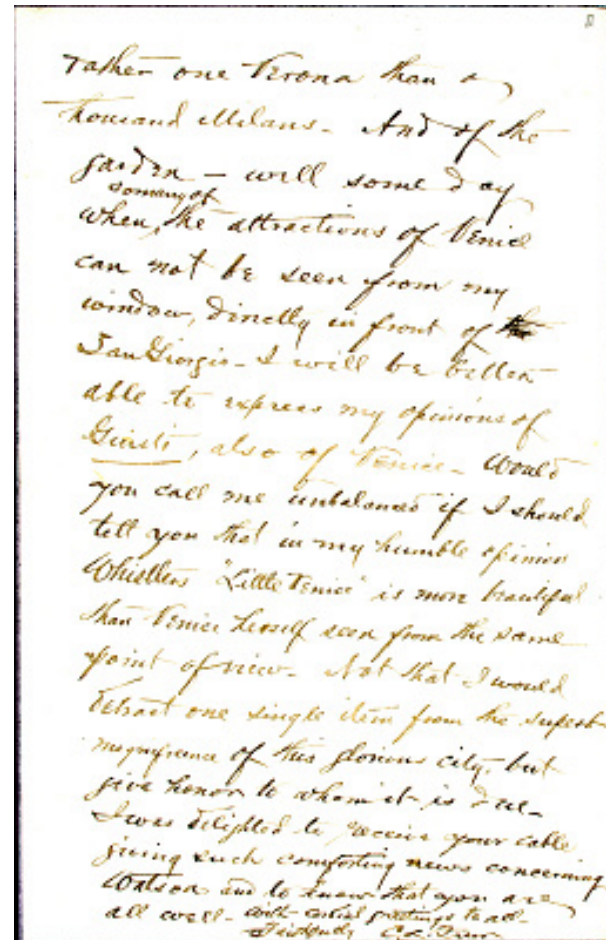 rather one Verona than a
thousand Milans - And of the
garden - well some day
so many of
when, the attractions of Venice
can not be seen from my
window, directly in front of the
San Giorgio - I will be better
able to express my opinions of
Giusti, also of Venice - Would
you call me unbalanced if I should
tell you that in my humble opinion
Whistlers "Little Venice" is more beautiful
than Venice herself seen from the same
point of view - Not that I would
detract one single item from the superb
magnificence of this glorious city, but
give honor to whom it is due -
I was delighted to receive your cable
giving such comforting news concerning
Watson and to know that you are
all well - With cordial greetings to all -
Faithfully C.L. Freer